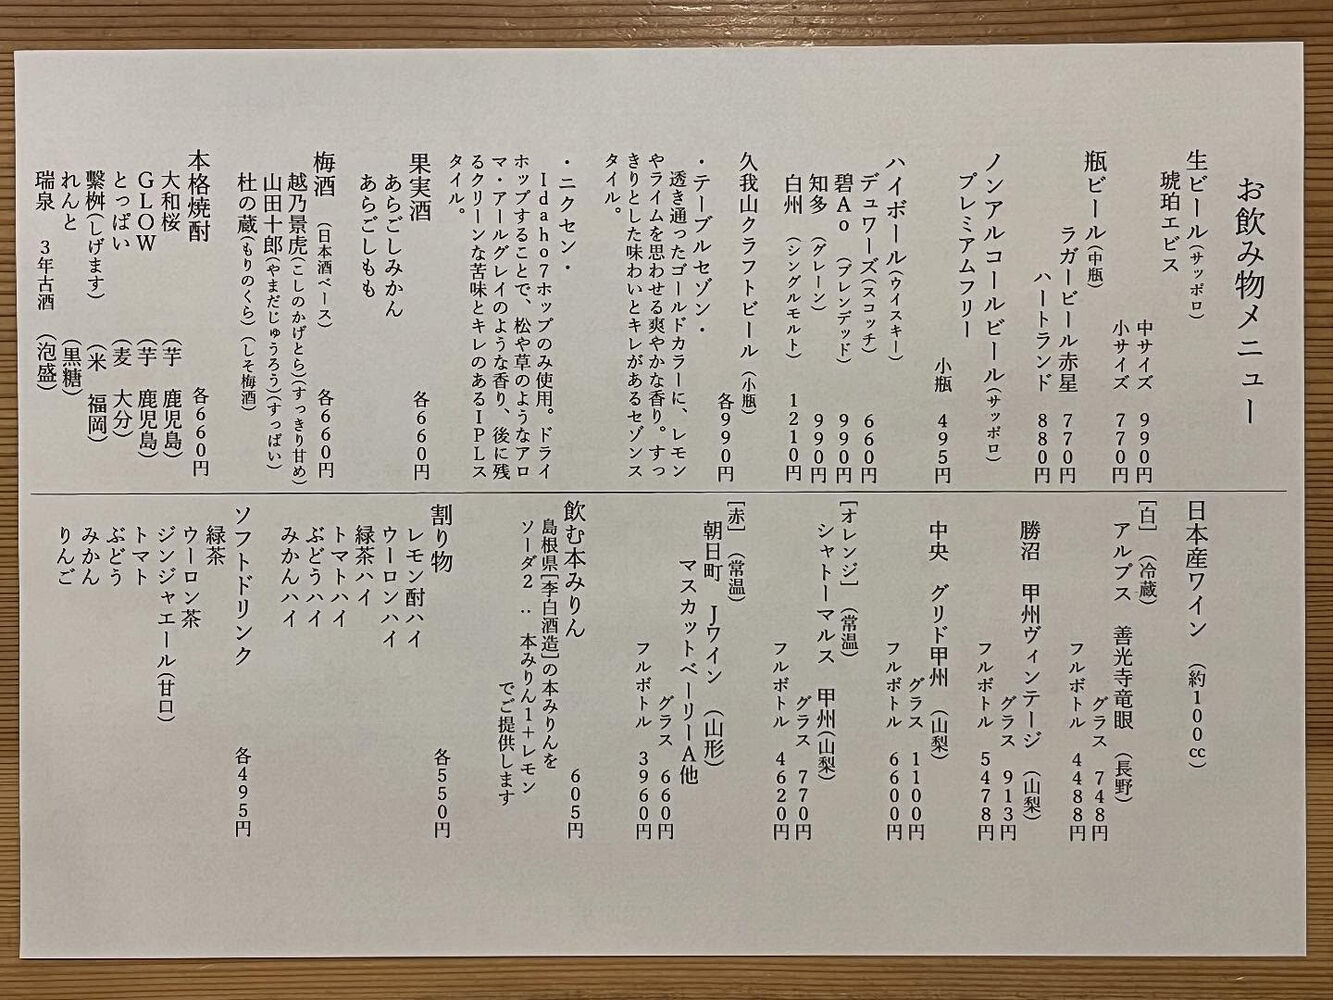 お飲み物メニュー
生ビール(サッポロ)
琥珀エビス
中サイズ 990円
小サイズ 770円
瓶ビール(中瓶)
ラガービール赤星 770円
ハートランド 880円
ノンアルコールビール(サッポロ)
プレミアムフリー
小瓶 495円
ハイボール(ウイスキー)
デュワーズ(スコッチ) 660円
碧Ao (ブレンデッド) 990円
知多 (グレーン) 990円
白州 (シングルモルト) 1210円
久我山クラフトビール (小瓶)
各990円
・テーブルセゾン・
透き通ったゴールドカラーに、レモン
やライムを思わせる爽やかな香り。すっ
きりとした味わいとキレがあるセゾンス
タイル。
・ニクセン・
Idaho7ホップのみ使用。ドライ
ホップすることで、松や草のようなアロ
マ・アールグレイのような香り、後に残
るクリーンな苦味とキレのあるIPLス
タイル。
果実酒 各660円
あらごしみかん
あらごしもも
梅酒 (日本酒ベース) 各660円
越乃景虎(こしのかげとら)(すっきり甘め)
山田十郎(やまだじゅうろう)(すっぱい)
杜の蔵(もりのくら)(しそ梅酒)
本格焼酎 各660円
大和桜 (芋 鹿児島)
GLOW (芋 鹿児島)
とっぱい (麦 大分)
繋桝(しげます) (米 福岡)
れんと (黒糖)
瑞泉 3年古酒 (泡盛)
日本産ワイン (約100cc)
[白] (冷蔵)
アルプス 善光寺竜眼 (長野)
グラス 748円
フルボトル 4488円
勝沼 甲州ヴィンテージ (山梨)
グラス 913円
フルボトル 5478円
中央 グリド甲州 (山梨)
グラス 1100円
フルボトル 6600円
[オレンジ] (常温)
シャトーマルス 甲州(山梨)
グラス 770円
フルボトル 4620円
[赤] (常温)
朝日町 Jワイン (山形)
マスカットベーリーA他
グラス 660円
フルボトル 3960円
飲む本みりん 605円
島根県[李白酒造]の本みりんを
ソーダ2:本みりん1+レモン
でご提供します
割り物 各550円
レモン酎ハイ
ウーロンハイ
緑茶ハイ
トマトハイ
ぶどうハイ
みかんハイ
ソフトドリンク 各495円
緑茶
ウーロン茶
ジンジャエール(甘口)
トマト
ぶどう
みかん
りんご